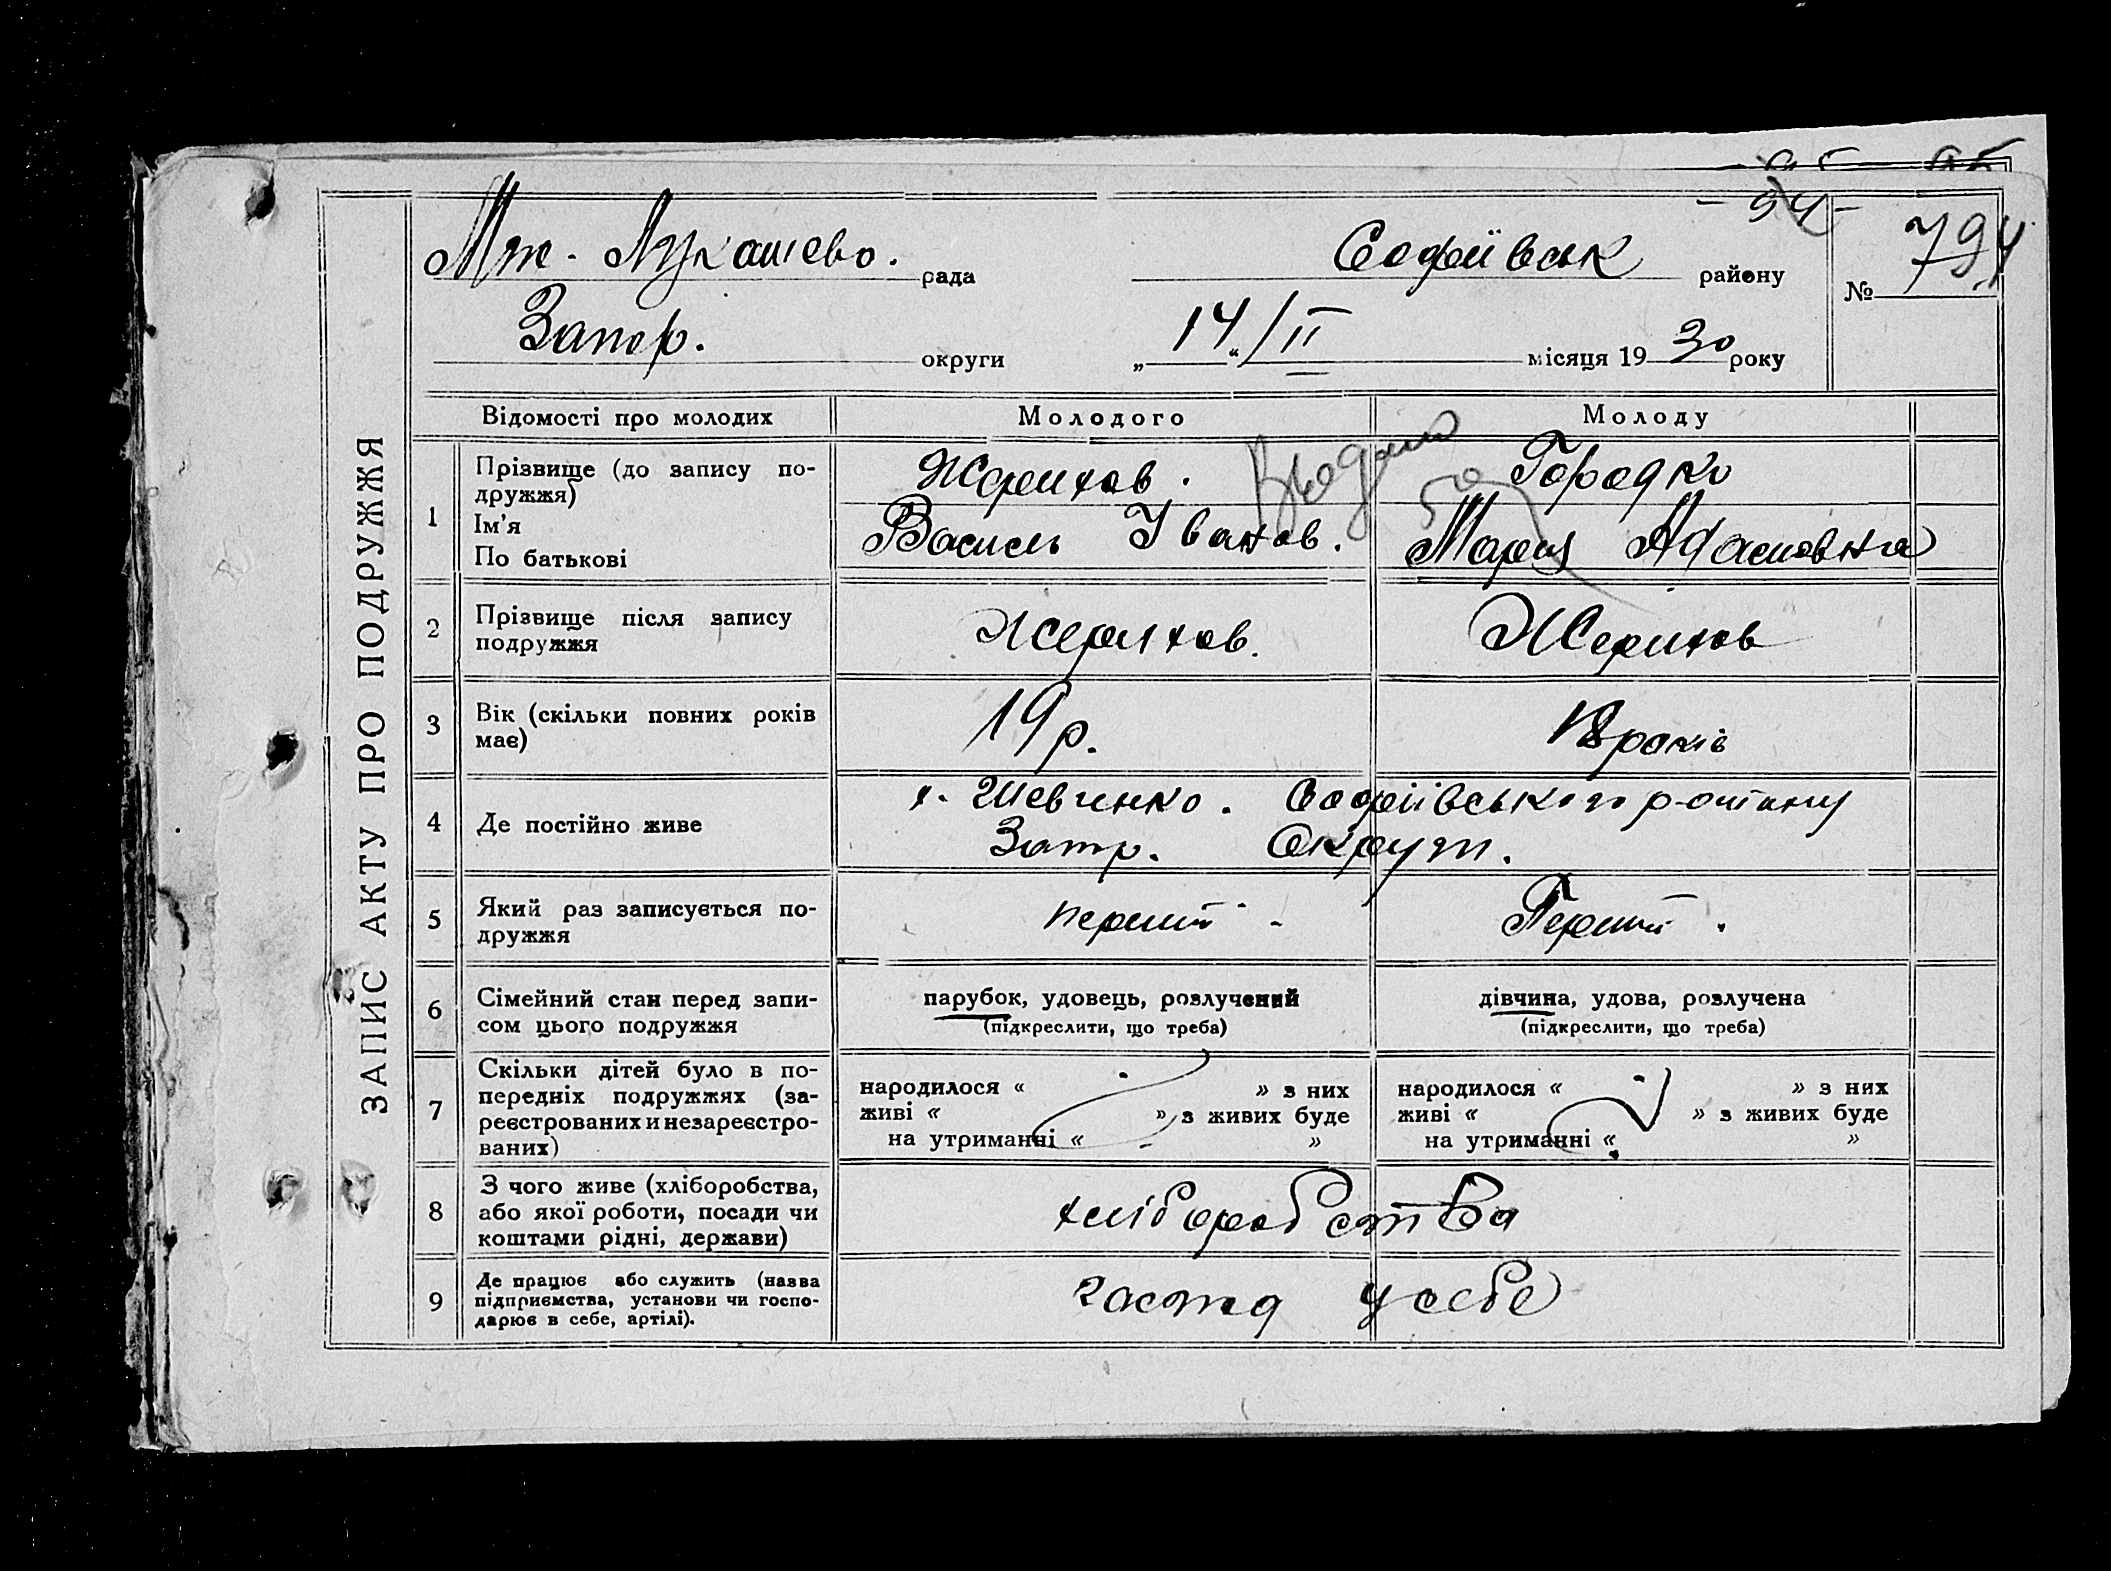 - 94 -
ЗАПИС АКТУ ПРО ПОДРУЖЖЯ
Мж. Лукашево. рада Софіївськ району № 794
Запор. округи „ 14 “ / II місяця 19 30 року
Відомості про молодих Молодого Молоду
1 Прізвище (до запису по-
дружжя) Жерихов. Городко
Ім'я
По батькові Василь Іванов. Мария Адамовна
2 Прізвище після запису
подружжя Жерихов. Жерихов
3 Вік (скільки повних років
має) 19 р. 18 років
4 Де постійно живе х. Шевченко. Софіївського р-ойону
Запр. Округи.
5 Який раз записується по-
дружжя перший - Перший.
6 Сімейний стан перед запи-
сом цього подружжя
парубок, удовець, розлучений дівчина, удова, розлучена
(підкреслити, що треба) (підкреслити, що треба)
7 Скільки дітей було в по-
передніх подружжях (за-
реєстрованих и незареєстро-
ваних)
народилося « » з них народилося « » з них
живі « » з живих буде живі « » з живих буде
на утриманні « » на утриманні « »
8 З чого живе (хліборобства,
або якої роботи, посади чи
коштами рідні, держави) хліборобства
9 Де працює або служить (назва
підприємства, установи чи госпо-
дарює в себе, артілі). у себе